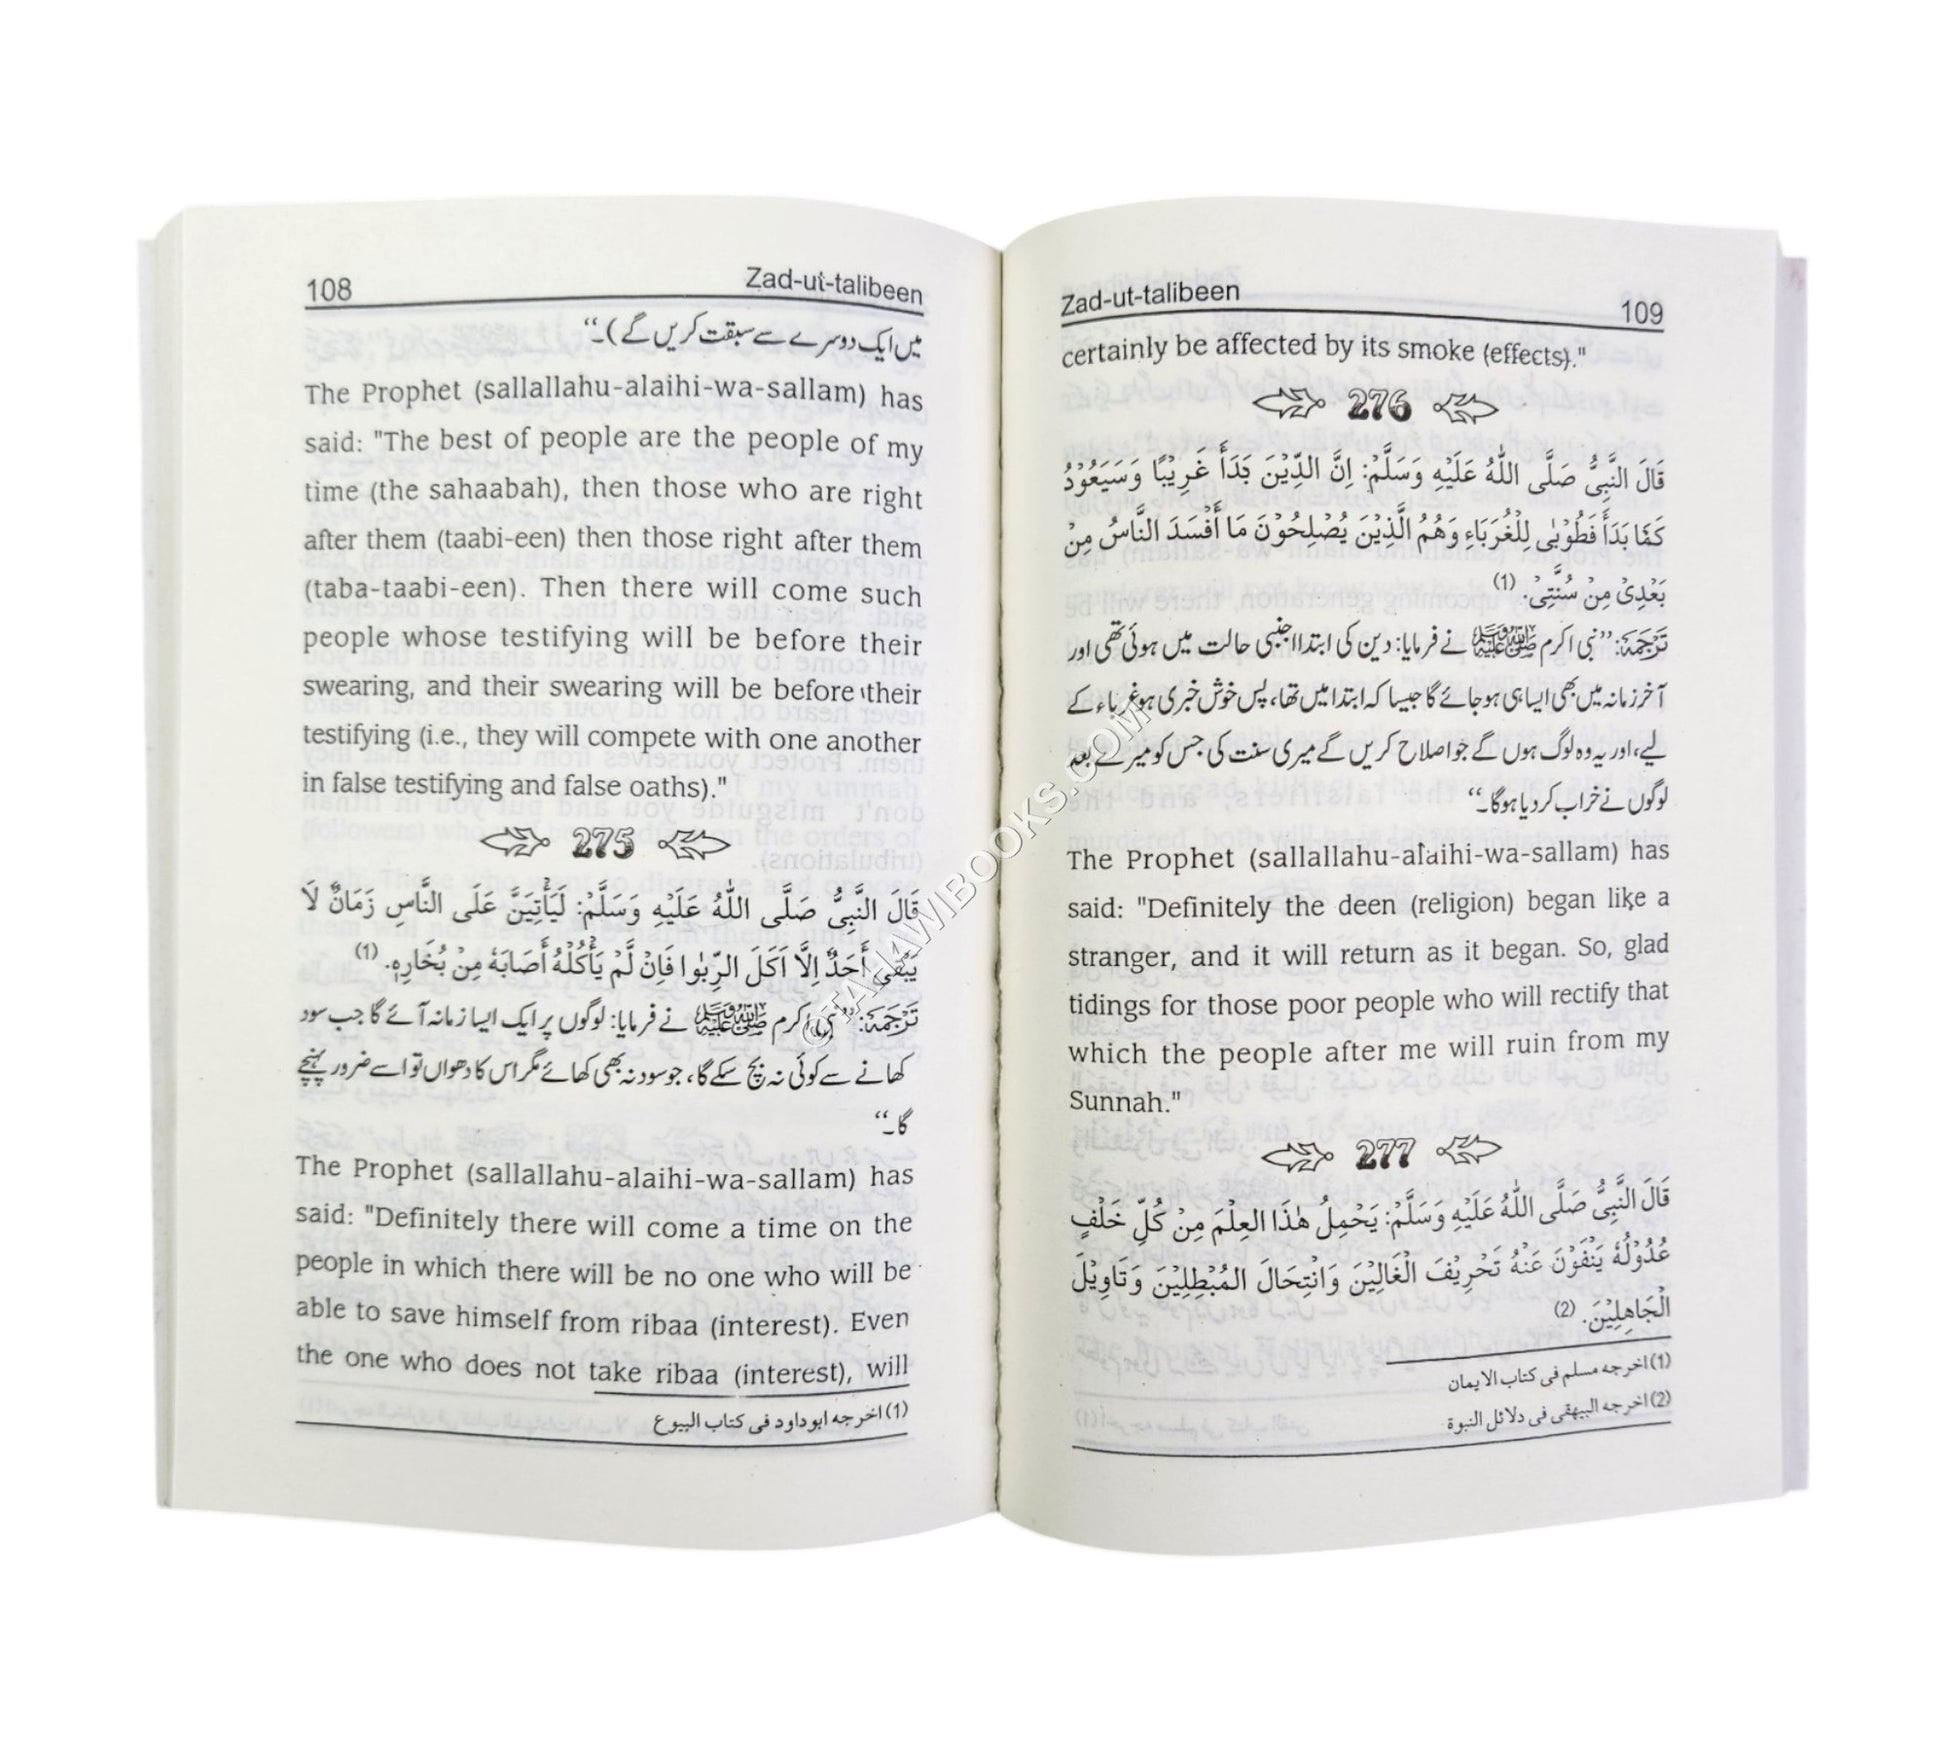 108 Zad-ut-talibeen
میں ایک دوسرے سے سبقت کریں گے)۔“
The Prophet (sallallahu-alaihi-wa-sallam) has
said: "The best of people are the people of my
time (the sahaabah), then those who are right
after them (taabi-een) then those right after them
(taba-taabi-een). Then there will come such
people whose testifying will be before their
swearing, and their swearing will be before their
testifying (i.e., they will compete with one another
in false testifying and false oaths)."
275
قَالَ النَّبِىُّ صَلَّى اللّٰهُ عَلَيْهِ وَسَلَّمْ: لَيَأْتِيَنَّ عَلَى النَّاسِ زَمَانٌ لَا
يَبْقٰى أَحَدٌ اِلَّا اَكَلَ الرِّبٰوا فَاِنْ لَّمْ يَأْكُلْهُ أَصَابَهٗ مِنْ بُخَارِهٖ. (1)
تَرْجَمَة: ”نبی اکرم ﷺ نے فرمایا: لوگوں پر ایک ایسا زمانہ آئے گا جب سود
کھانے سے کوئی نہ بچ سکے گا، جو سود نہ بھی کھائے مگر اس کا دھواں تو اسے ضرور پہنچے
گا۔“
The Prophet (sallallahu-alaihi-wa-sallam) has
said: "Definitely there will come a time on the
people in which there will be no one who will be
able to save himself from ribaa (interest). Even
the one who does not take ribaa (interest), will
(1) اخرجه ابوداود فى كتاب البيوع
Zad-ut-talibeen 109
certainly be affected by its smoke (effects)."
276
قَالَ النَّبِىُّ صَلَّى اللّٰهُ عَلَيْهِ وَسَلَّمْ: اِنَّ الدِّيْنَ بَدَأَ غَرِيْبًا وَسَيَعُوْدُ
كَمَا بَدَأَ فَطُوْبٰى لِلْغُرَبَاءِ وَهُمُ الَّذِيْنَ يُصْلِحُوْنَ مَا أَفْسَدَ النَّاسُ مِنْ
بَعْدِىْ مِنْ سُنَّتِىْ. (1)
تَرْجَمَة: ”نبی اکرم ﷺ نے فرمایا: دین کی ابتدا اجنبی حالت میں ہوئی تھی اور
آخر زمانہ میں بھی ایسا ہی ہو جائے گا جیسا کہ ابتدا میں تھا، پس خوش خبری ہو غرباء کے
لیے، اور یہ وہ لوگ ہوں گے جو اصلاح کریں گے میری سنت کی جس کو میرے بعد
لوگوں نے خراب کر دیا ہوگا۔“
The Prophet (sallallahu-alaihi-wa-sallam) has
said: "Definitely the deen (religion) began like a
stranger, and it will return as it began. So, glad
tidings for those poor people who will rectify that
which the people after me will ruin from my
Sunnah."
277
قَالَ النَّبِىُّ صَلَّى اللّٰهُ عَلَيْهِ وَسَلَّمْ: يَحْمِلُ هٰذَا الْعِلْمَ مِنْ كُلِّ خَلْفٍ
عُدُوْلُهٗ يَنْفَوْنَ عَنْهُ تَحْرِيْفَ الْغَالِيْنَ وَانْتِحَالَ الْمُبْطِلِيْنَ وَتَاوِيْلَ
الْجَاهِلِيْنَ. (2)
(1) اخرجه مسلم فى كتاب الايمان
(2) اخرجه البيهقى فى دلائل النبوة
©TAKAWIBOOKS.COM